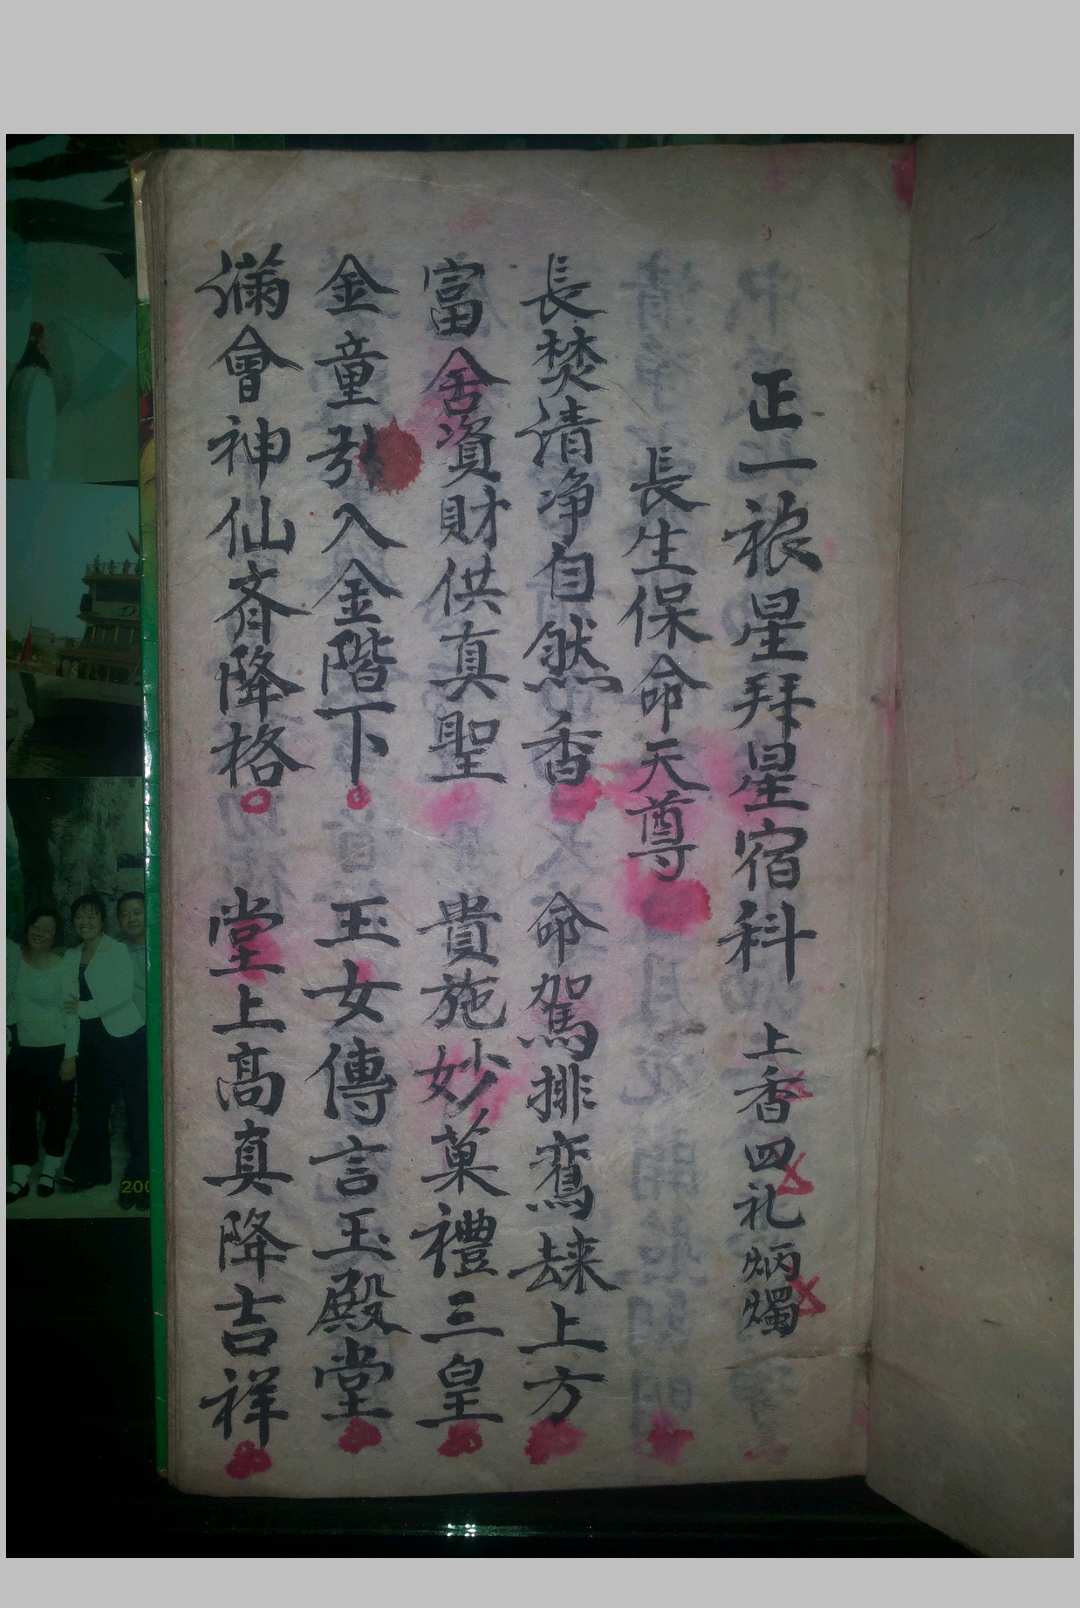 正一禳星拜星宿科 上香四礼炳燭
長生保命天尊
長焚清净自然香 命駕排鸞繞上方
富舍資財供真聖 貴施妙菓禮三皇
金童引入金階下 玉女傳言玉殿堂
滿會神仙齊降格 堂上高真降吉祥
200